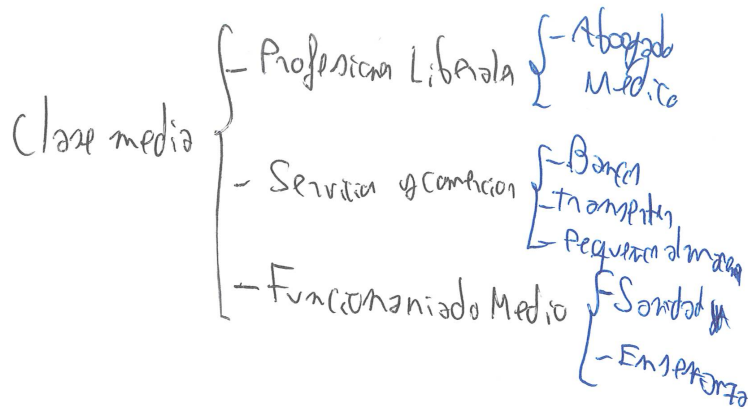 Clase media
- Profesiones Liberales
- Abogado
Médico
- Servicios y comercios
- Bancos
- transportes
- Pequeños almacenes
- Funcionariado Medio
- Sanidad
- Enseñanza